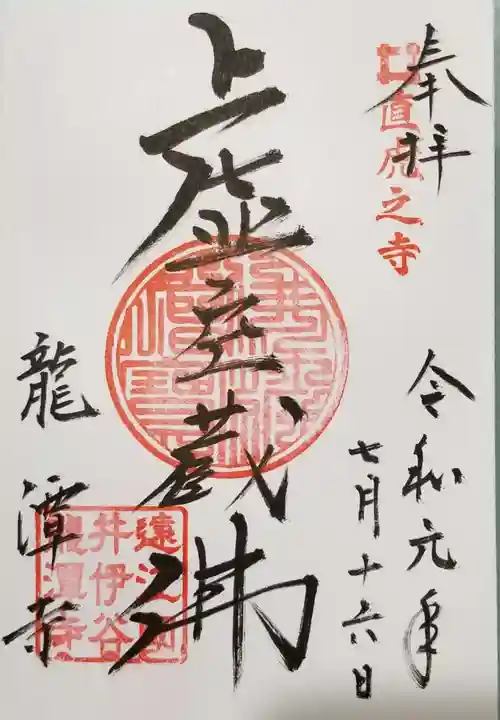 奉拝
直虎之寺
令和元年
七月十六日
虚空蔵佛
龍潭寺
遠江国
井伊谷
龍潭寺